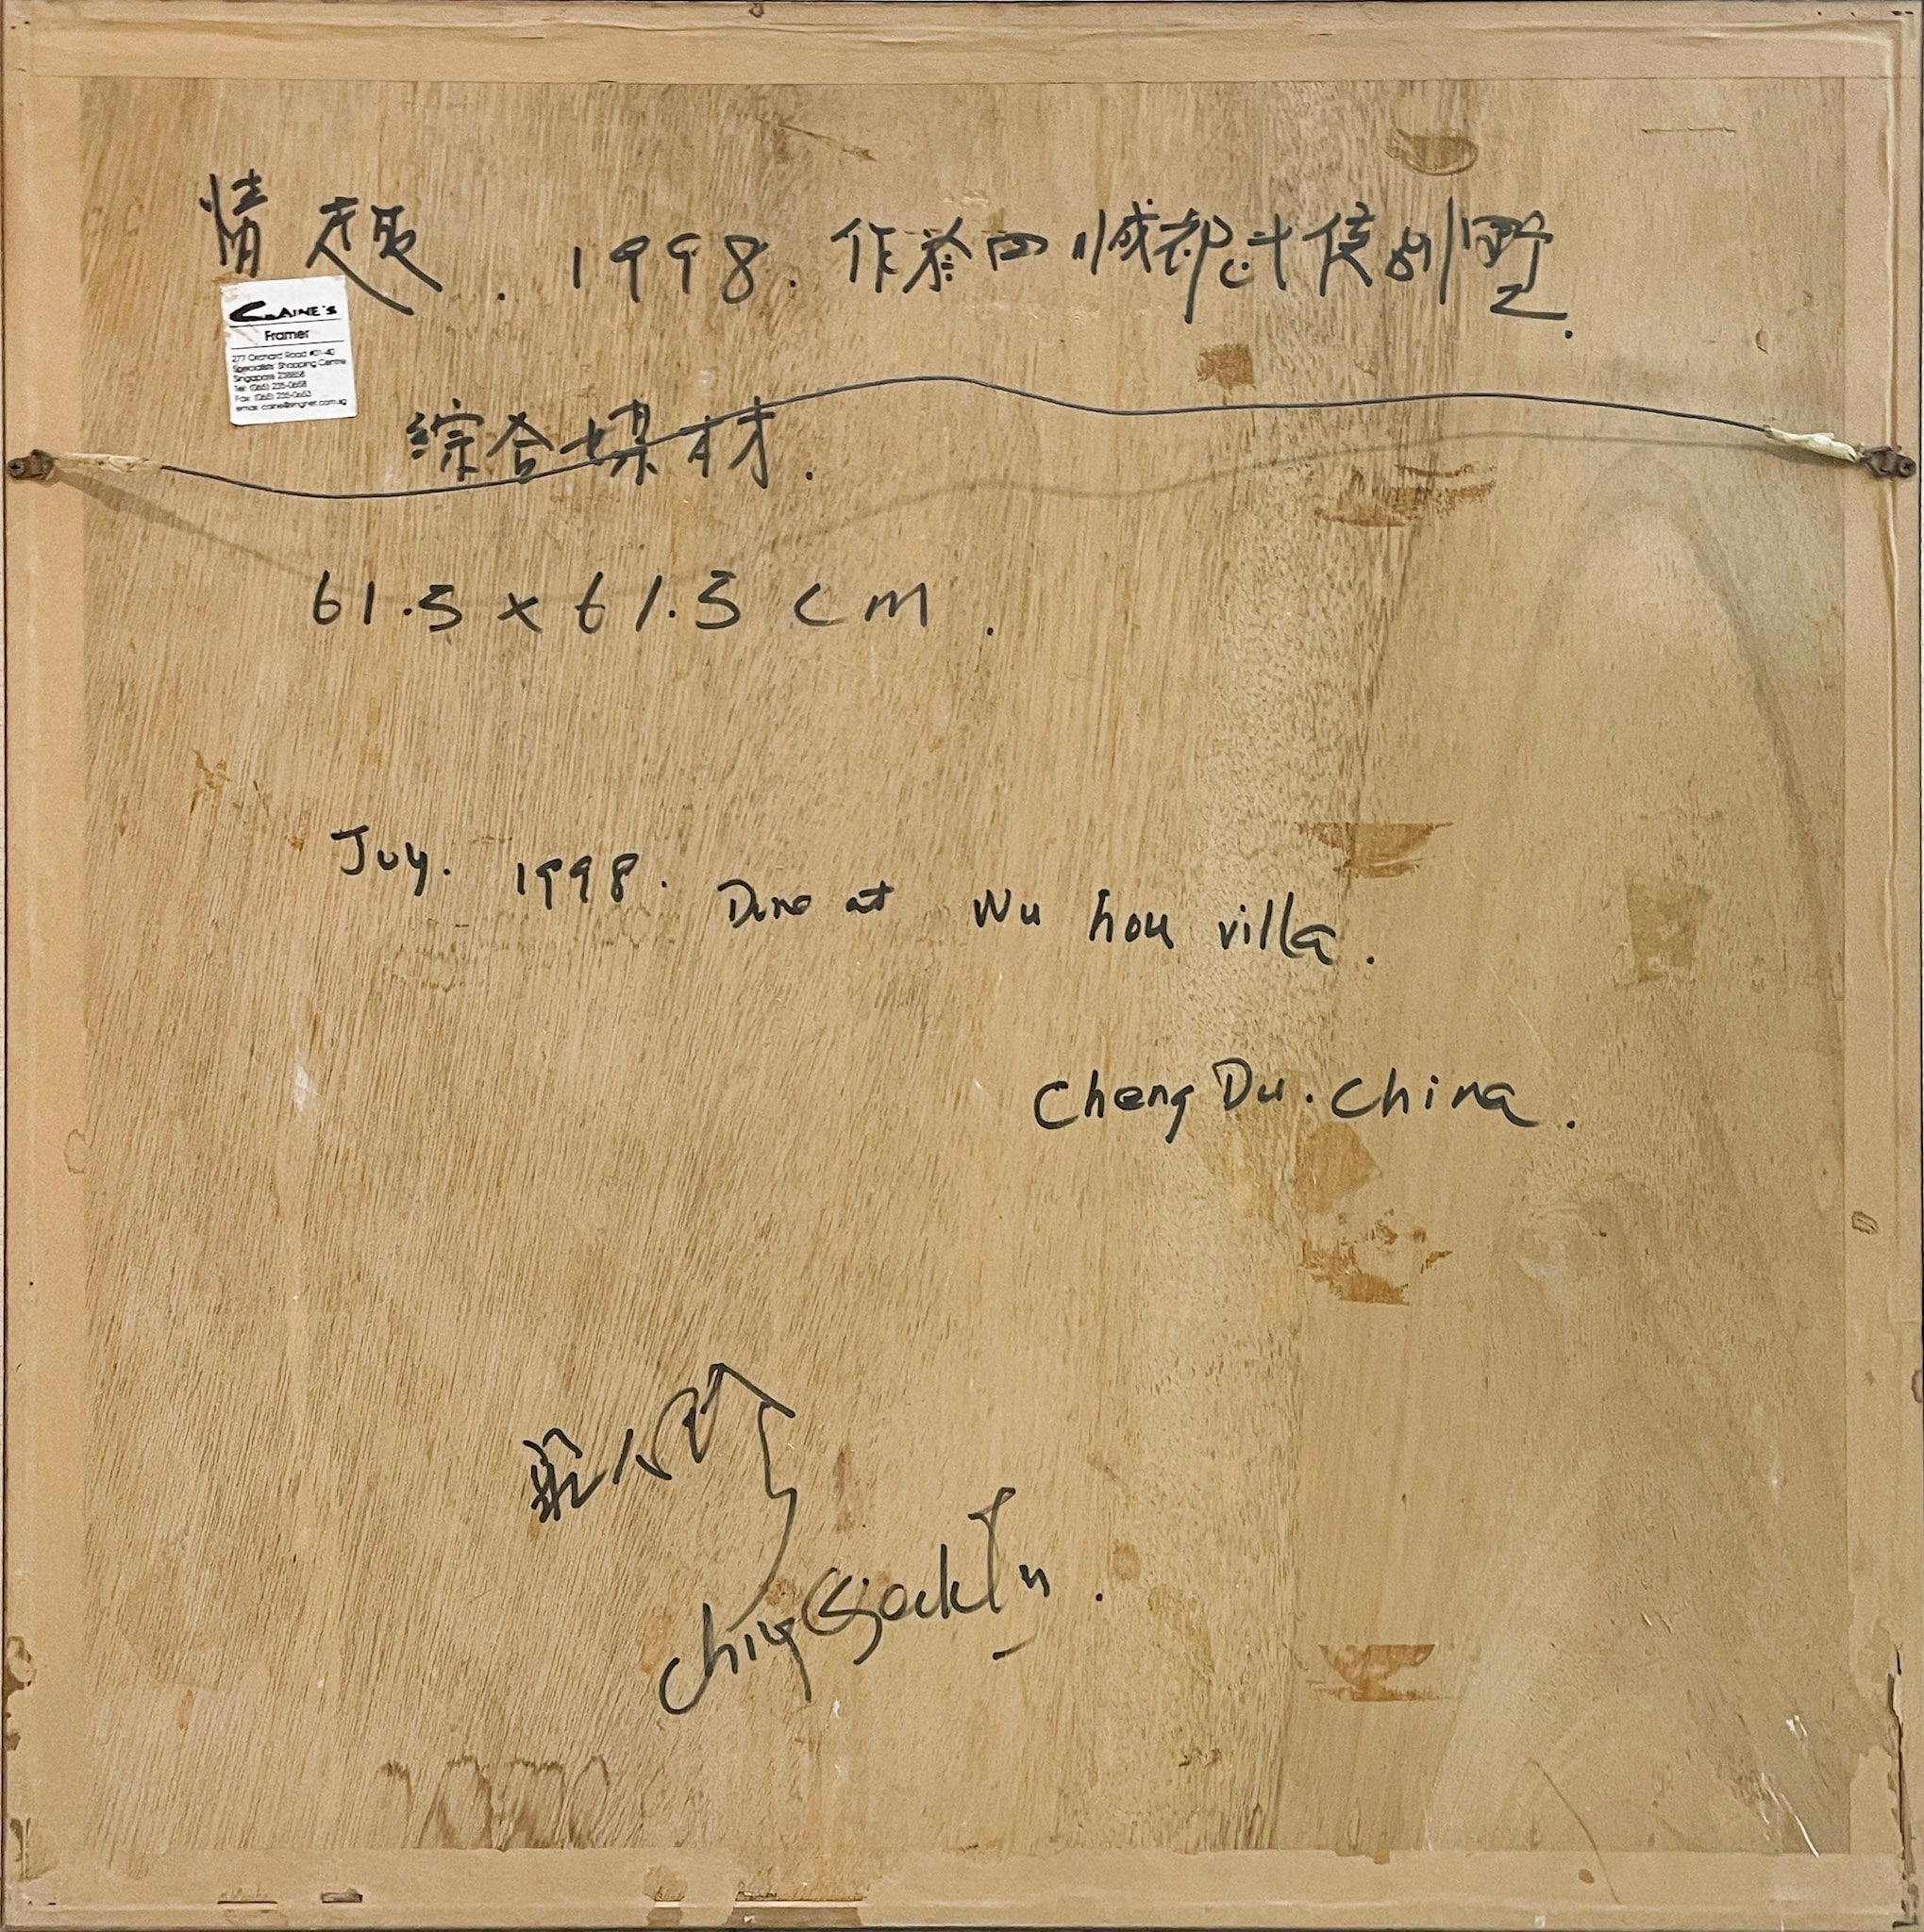 情趣. 1998. 作於四川成都武侯别墅.
CAINE'S
Framer
277 Orchard Road #01-40
Specialists' Shopping Centre
Singapore 238858
Tel: (065) 235-0658
Fax: (065) 235-0653
email: caine@singnet.com.sg
綜合媒材.
61.5 x 61.5 cm.
Juy. 1998. Done at Wu hou villa.
Cheng Du. China.
Chng Seok Tin.